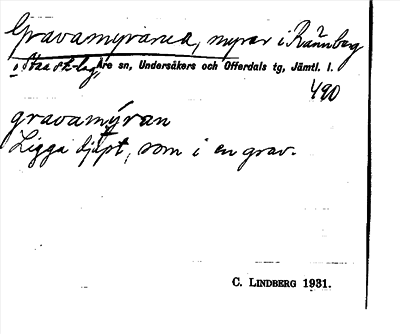 Gravamyrarna, myrar i Rännberg
o Staa sk-lag, Åre sn, Undersåkers och Offerdals tg, Jämtl. l.
490
gravamýran
Ligga djupt, som i en grav.
C. LINDBERG 1931.